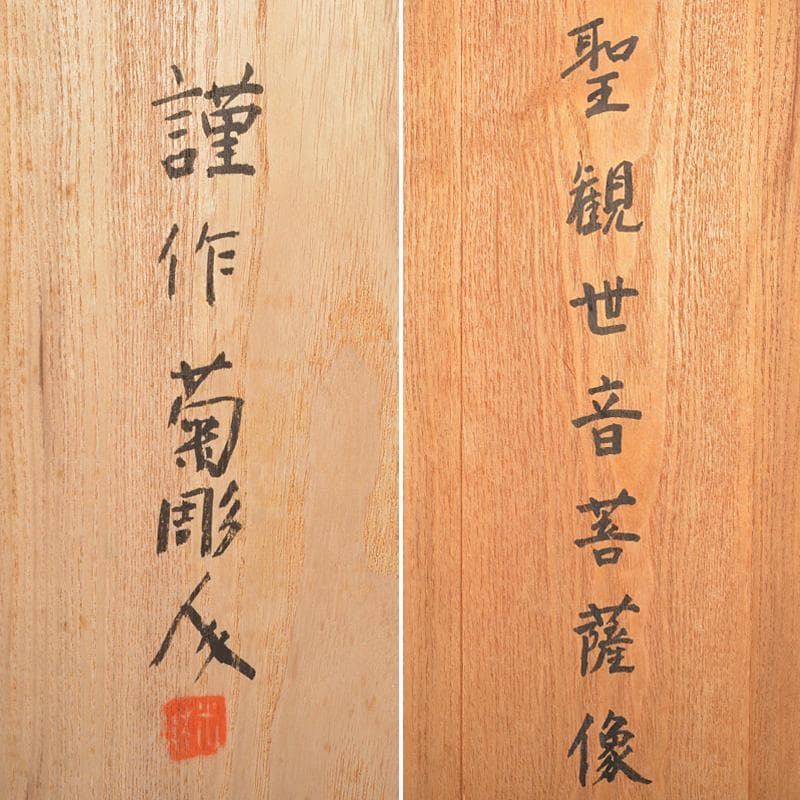 聖観世音菩薩像
謹作 菊彫人